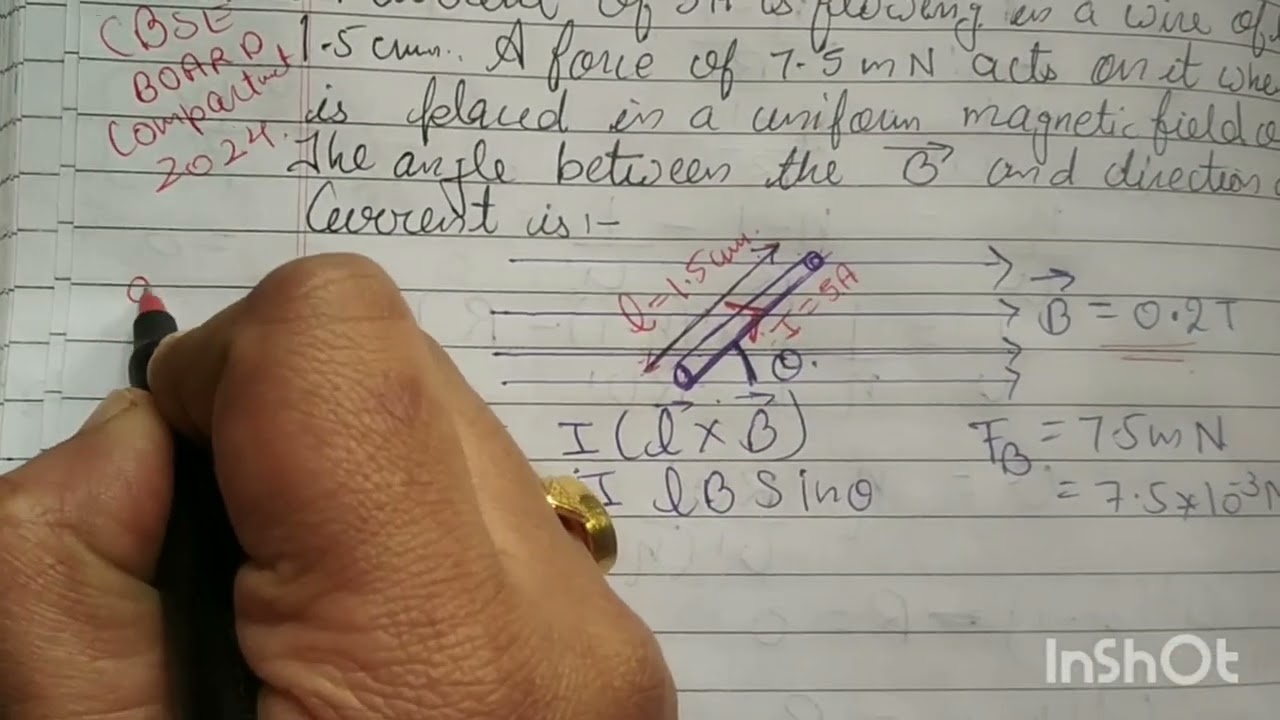 CBSE
BOARD
Compactment
2024.
of 5A is flowing in a wire of
1.5 cm. A force of 7.5 mN acts on it whe
is placed in a uniform magnetic field o
The angle between the B→ and direction
Current is :-
l = 1.5 cm.
I = 5A
θ.
B→ = 0.2T
I (l→ × B→)
I lB Sinθ
F_B = 7.5 mN
= 7.5 × 10⁻³ N
InShOt